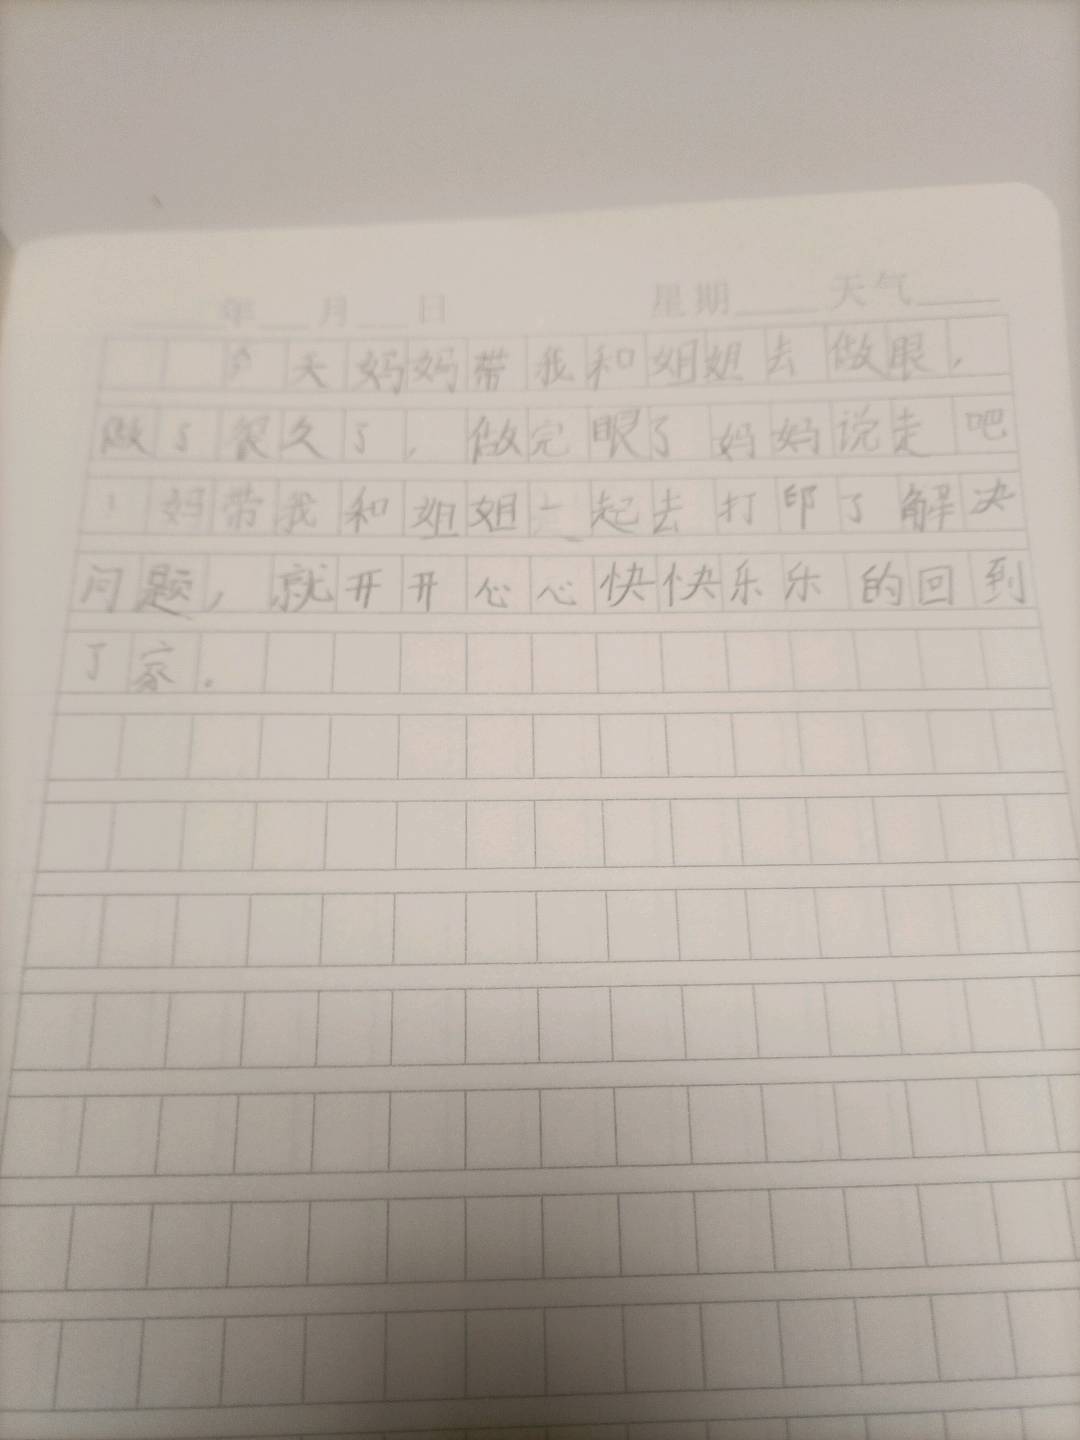 年 月 日 星期 天气
今天妈妈带我和姐姐去做眼,
做了很久了,做完眼了妈妈说走吧
!妈带我和姐姐一起去打印了解决
问题,就开开心心快快乐乐的回到
了家.